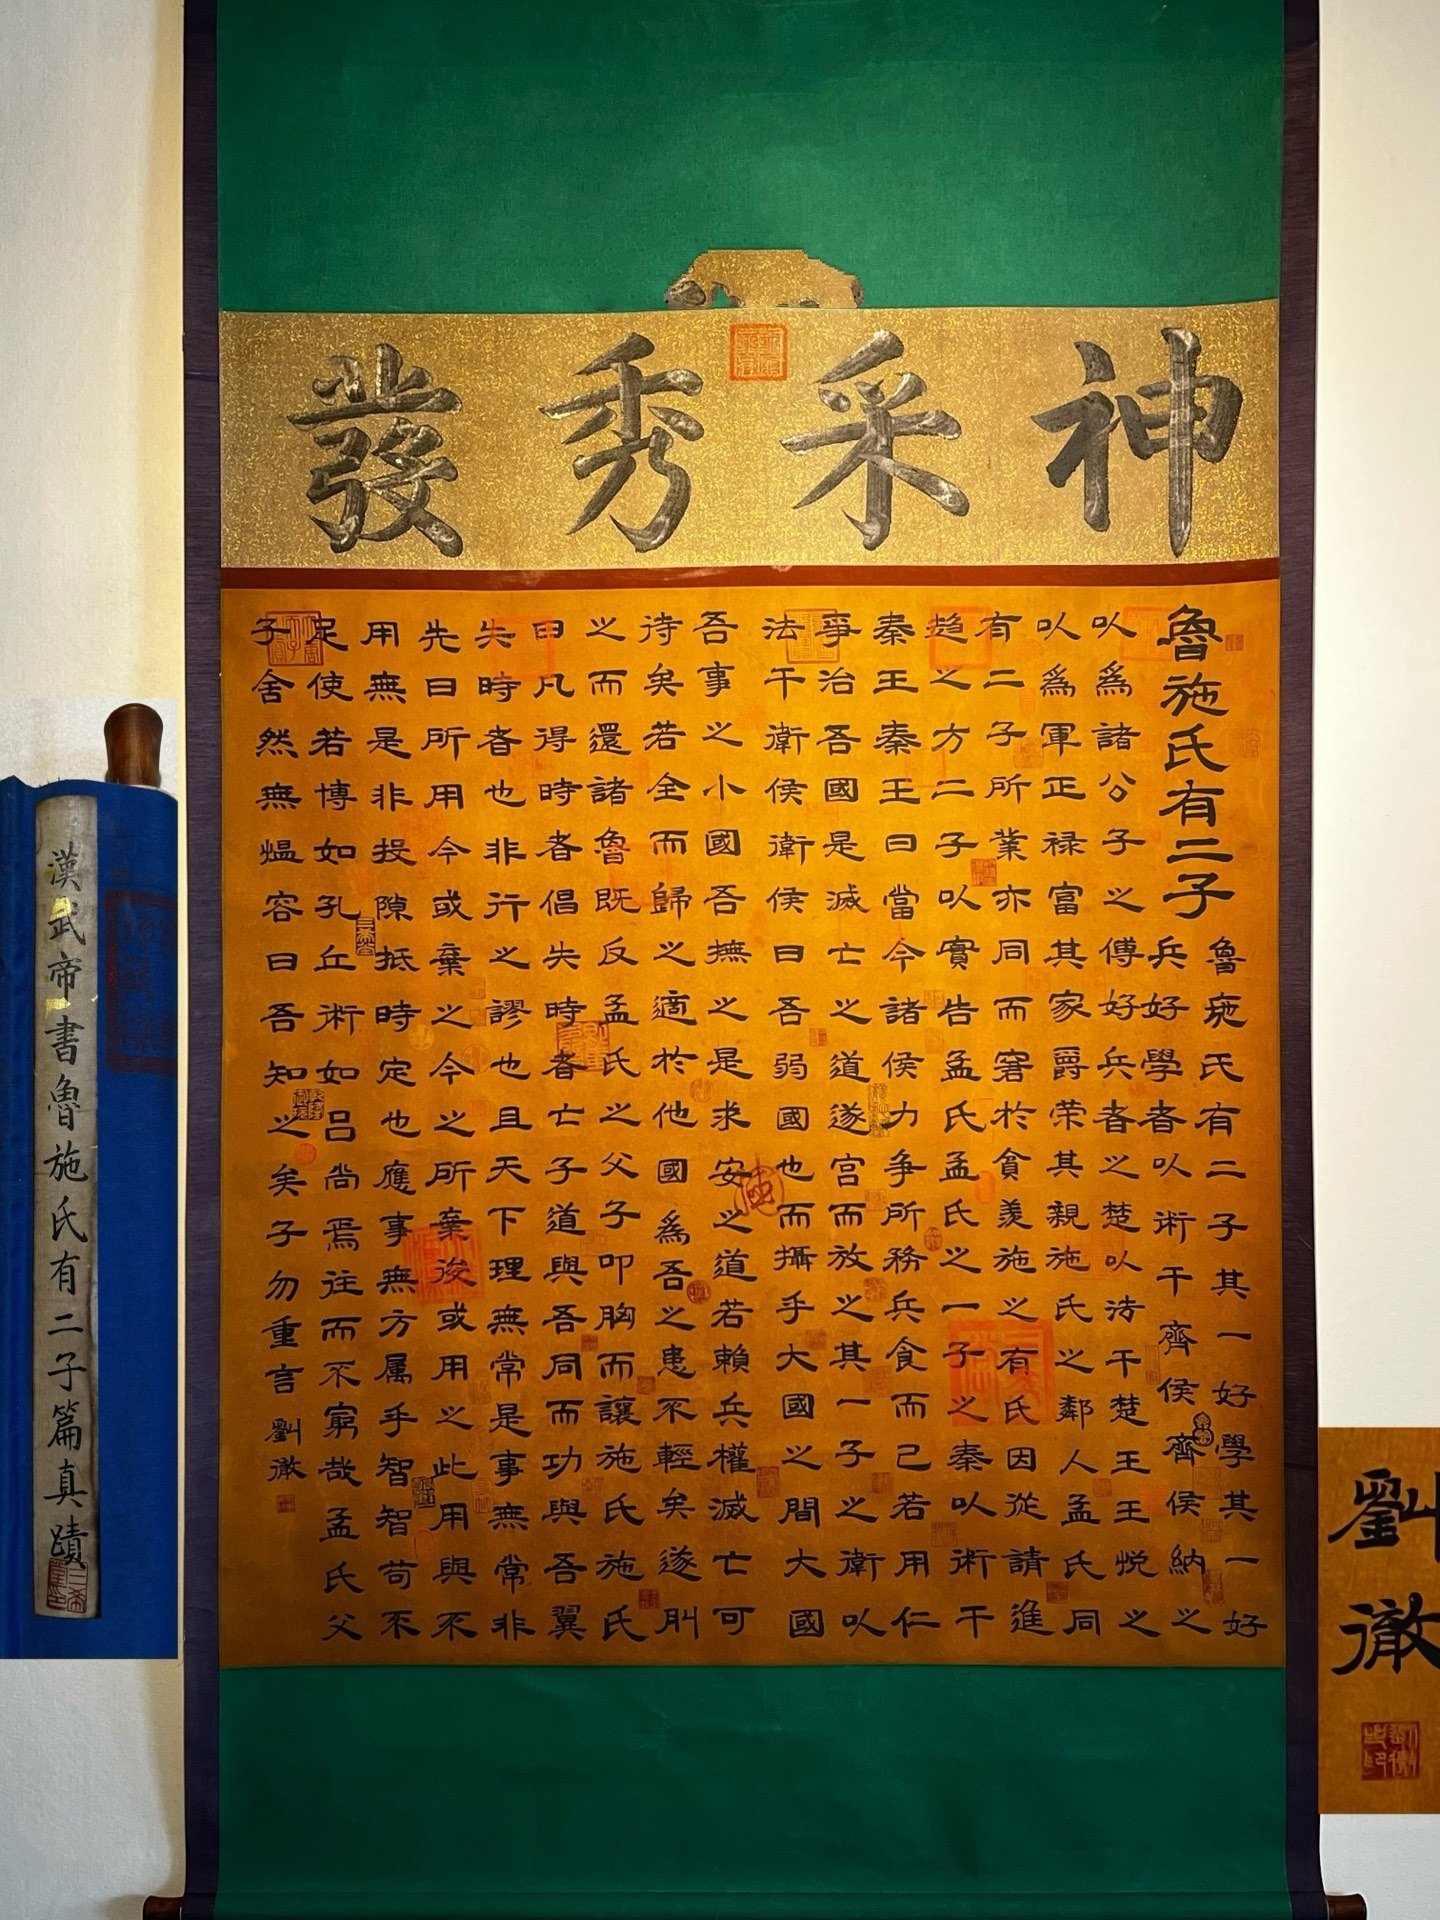 神采秀發
魯施氏有二子
魯施氏有二子其一好學其一好
兵好學者以術干齊侯齊侯納之
以爲諸公子之傅好兵者之楚以法干楚王王悅之
以爲軍正禄富其家爵荣其親施氏之鄰人孟氏同
有二子所業亦同而窘於貧羨施之有氏因從請進
趋之方二子以實告孟氏孟氏之一子之秦以術干
秦王秦王曰當今諸侯力爭所務兵食而已若用仁
爭治吾國是滅亡之道遂宫而放之其一子之衛以
法干衛侯衛侯曰吾弱國也而攝乎大國之間大國
吾事之小國吾撫之是求安之道若賴兵權滅亡可
待矣若全而歸之適於他國爲吾之患不輕矣遂刖
之而還諸魯既反孟氏之父子叩胸而讓施氏施氏
曰凡得時者倡失時者亡子道與吾同而功與吾翼
失時者也非行之謬也且天下理無常是事無常非
先日所用今或棄之今之所棄後或用之此用與不
用無是非投隙抵時定也應事無方属乎智智苟不
足使若博如孔丘術如吕尚焉往而不窮哉孟氏父
子舍然無愠容曰吾知之矣子勿重言劉徹
漢武帝書魯施氏有二子篇真蹟
劉徹